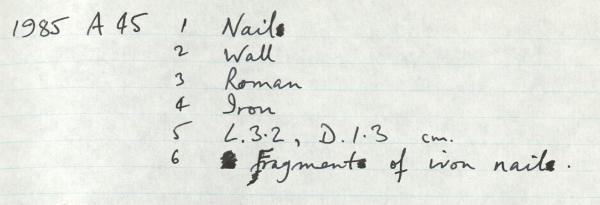 1985 A 45 1 Nail
2 Wall
3 Roman
4 Iron
5 L.3.2, D.1.3 cm.
6 Fragment of iron nail.